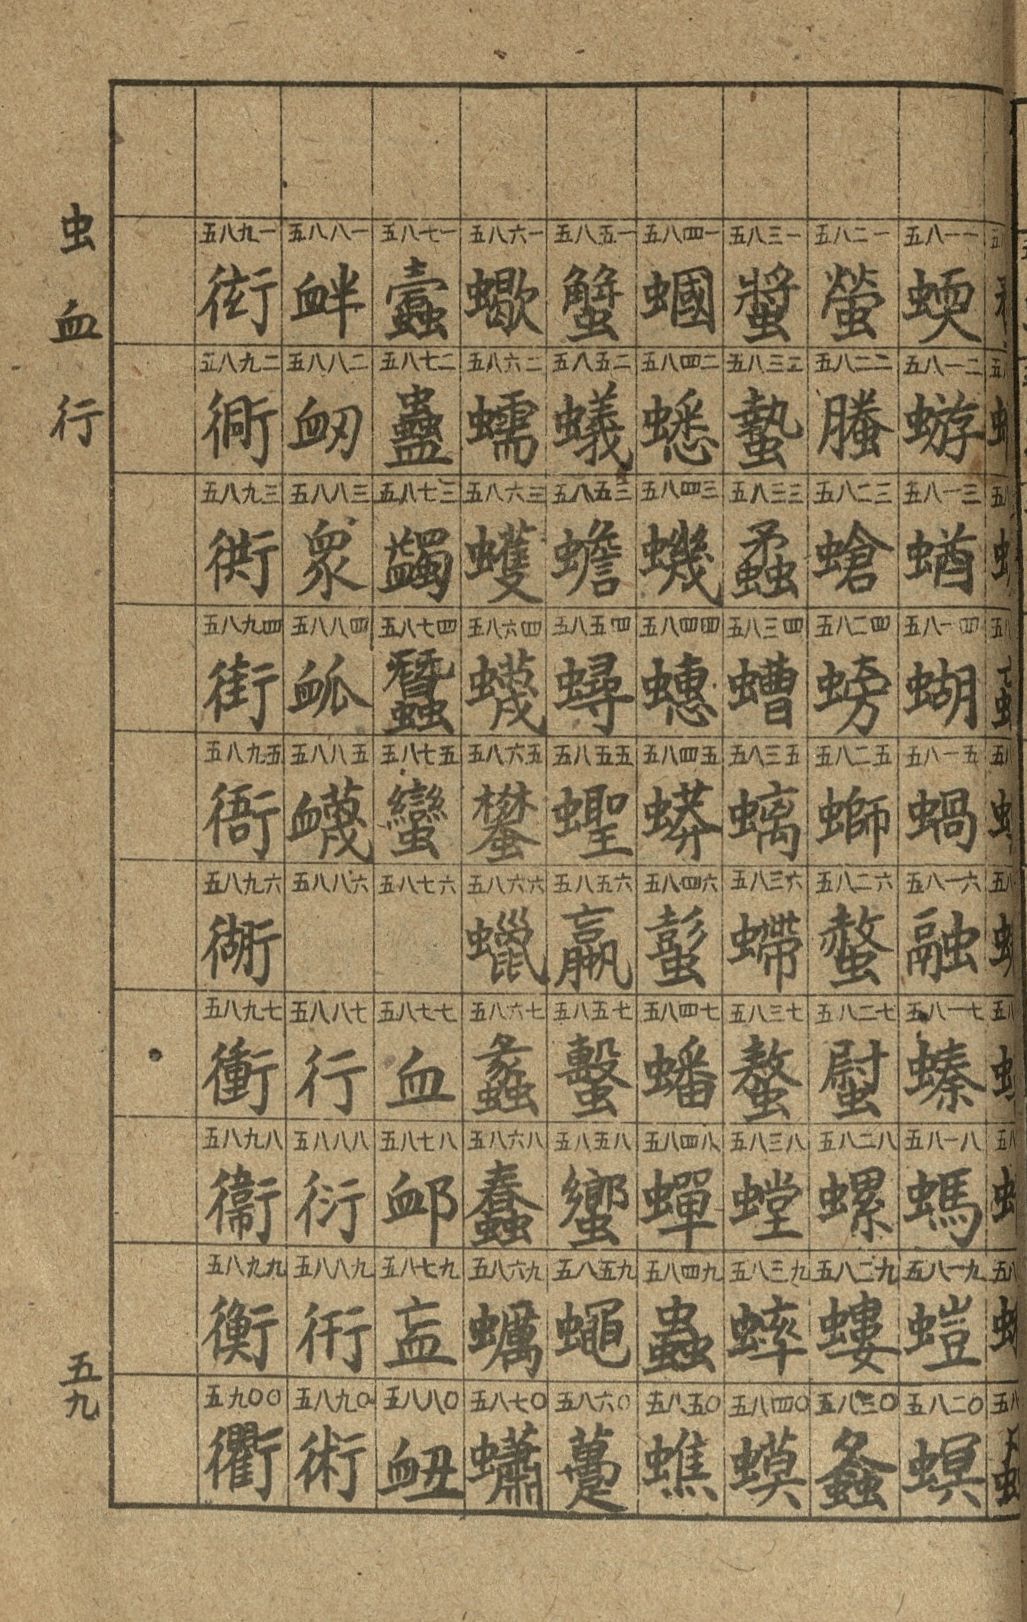 五八一一 蝡 五八一二 蝣 五八一三 蝤 五八一四 蝴 五八一五 蝸 五八一六 融 五八一七 螓 五八一八 螞 五八一九 螘 五八二〇 螟
五八二一 螢 五八二二 螣 五八二三 螥 五八二四 螃 五八二五 螄 五八二六 螫 五八二七 螱 五八二八 螺 五八二九 螻 五八三〇 螽
五八三一 螿 五八三二 蟄 五八三三 蟊 五八三四 螬 五八三五 螭 五八三六 螮 五八三七 螯 五八三八 螳 五八三九 蟀 五八四〇 蟆
五八四一 蟈 五八四二 蟋 五八四三 蟣 五八四四 蟪 五八四五 蟒 五八四六 蟚 五八四七 蟠 五八四八 蟬 五八四九 蟲 五八五〇 蟭
五八五一 蟹 五八五二 蟻 五八五三 蟾 五八五四 蟳 五八五五 蟶 五八五六 蠃 五八五七 蟿 五八五八 蠁 五八五九 蠅 五八六〇 躉
五八六一 蠍 五八六二 蠕 五八六三 蠖 五八六四 蠛 五八六五 蠜 五八六六 蠟 五八六七 蠡 五八六八 蠢 五八六九 蠣 五八七〇 蠨
五八七一 蠹 五八七二 蠱 五八七三 蠲 五八七四 蠶 五八七五 蠻 五八七六 五八七七 血 五八七八 卹 五八七九 衁 五八八〇 衄
五八八一 衅 五八八二 衂 五八八三 衆 五八八四 衇 五八八五 衊 五八八六 五八八七 行 五八八八 衍 五八八九 衎 五八九〇 術
五八九一 衒 五八九二 衕 五八九三 衖 五八九四 街 五八九五 衙 五八九六 衚 五八九七 衝 五八九八 衛 五八九九 衡 五九〇〇 衢
虫血行
五九